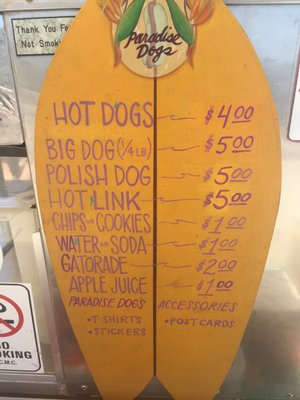 Thank You For
Not Smoki
Paradise
Dogs
HOT DOGS $4.00
BIG DOG (1/4 LB) $5.00
POLISH DOG $5.00
HOT LINK $5.00
CHIPS OR COOKIES $1.00
WATER OR SODA $1.00
GATORADE $2.00
APPLE JUICE $1.00
PARADISE DOGS ACCESSORIES
• T SHIRTS • POSTCARDS
• STICKERS
NO
OKING
C.M.C.